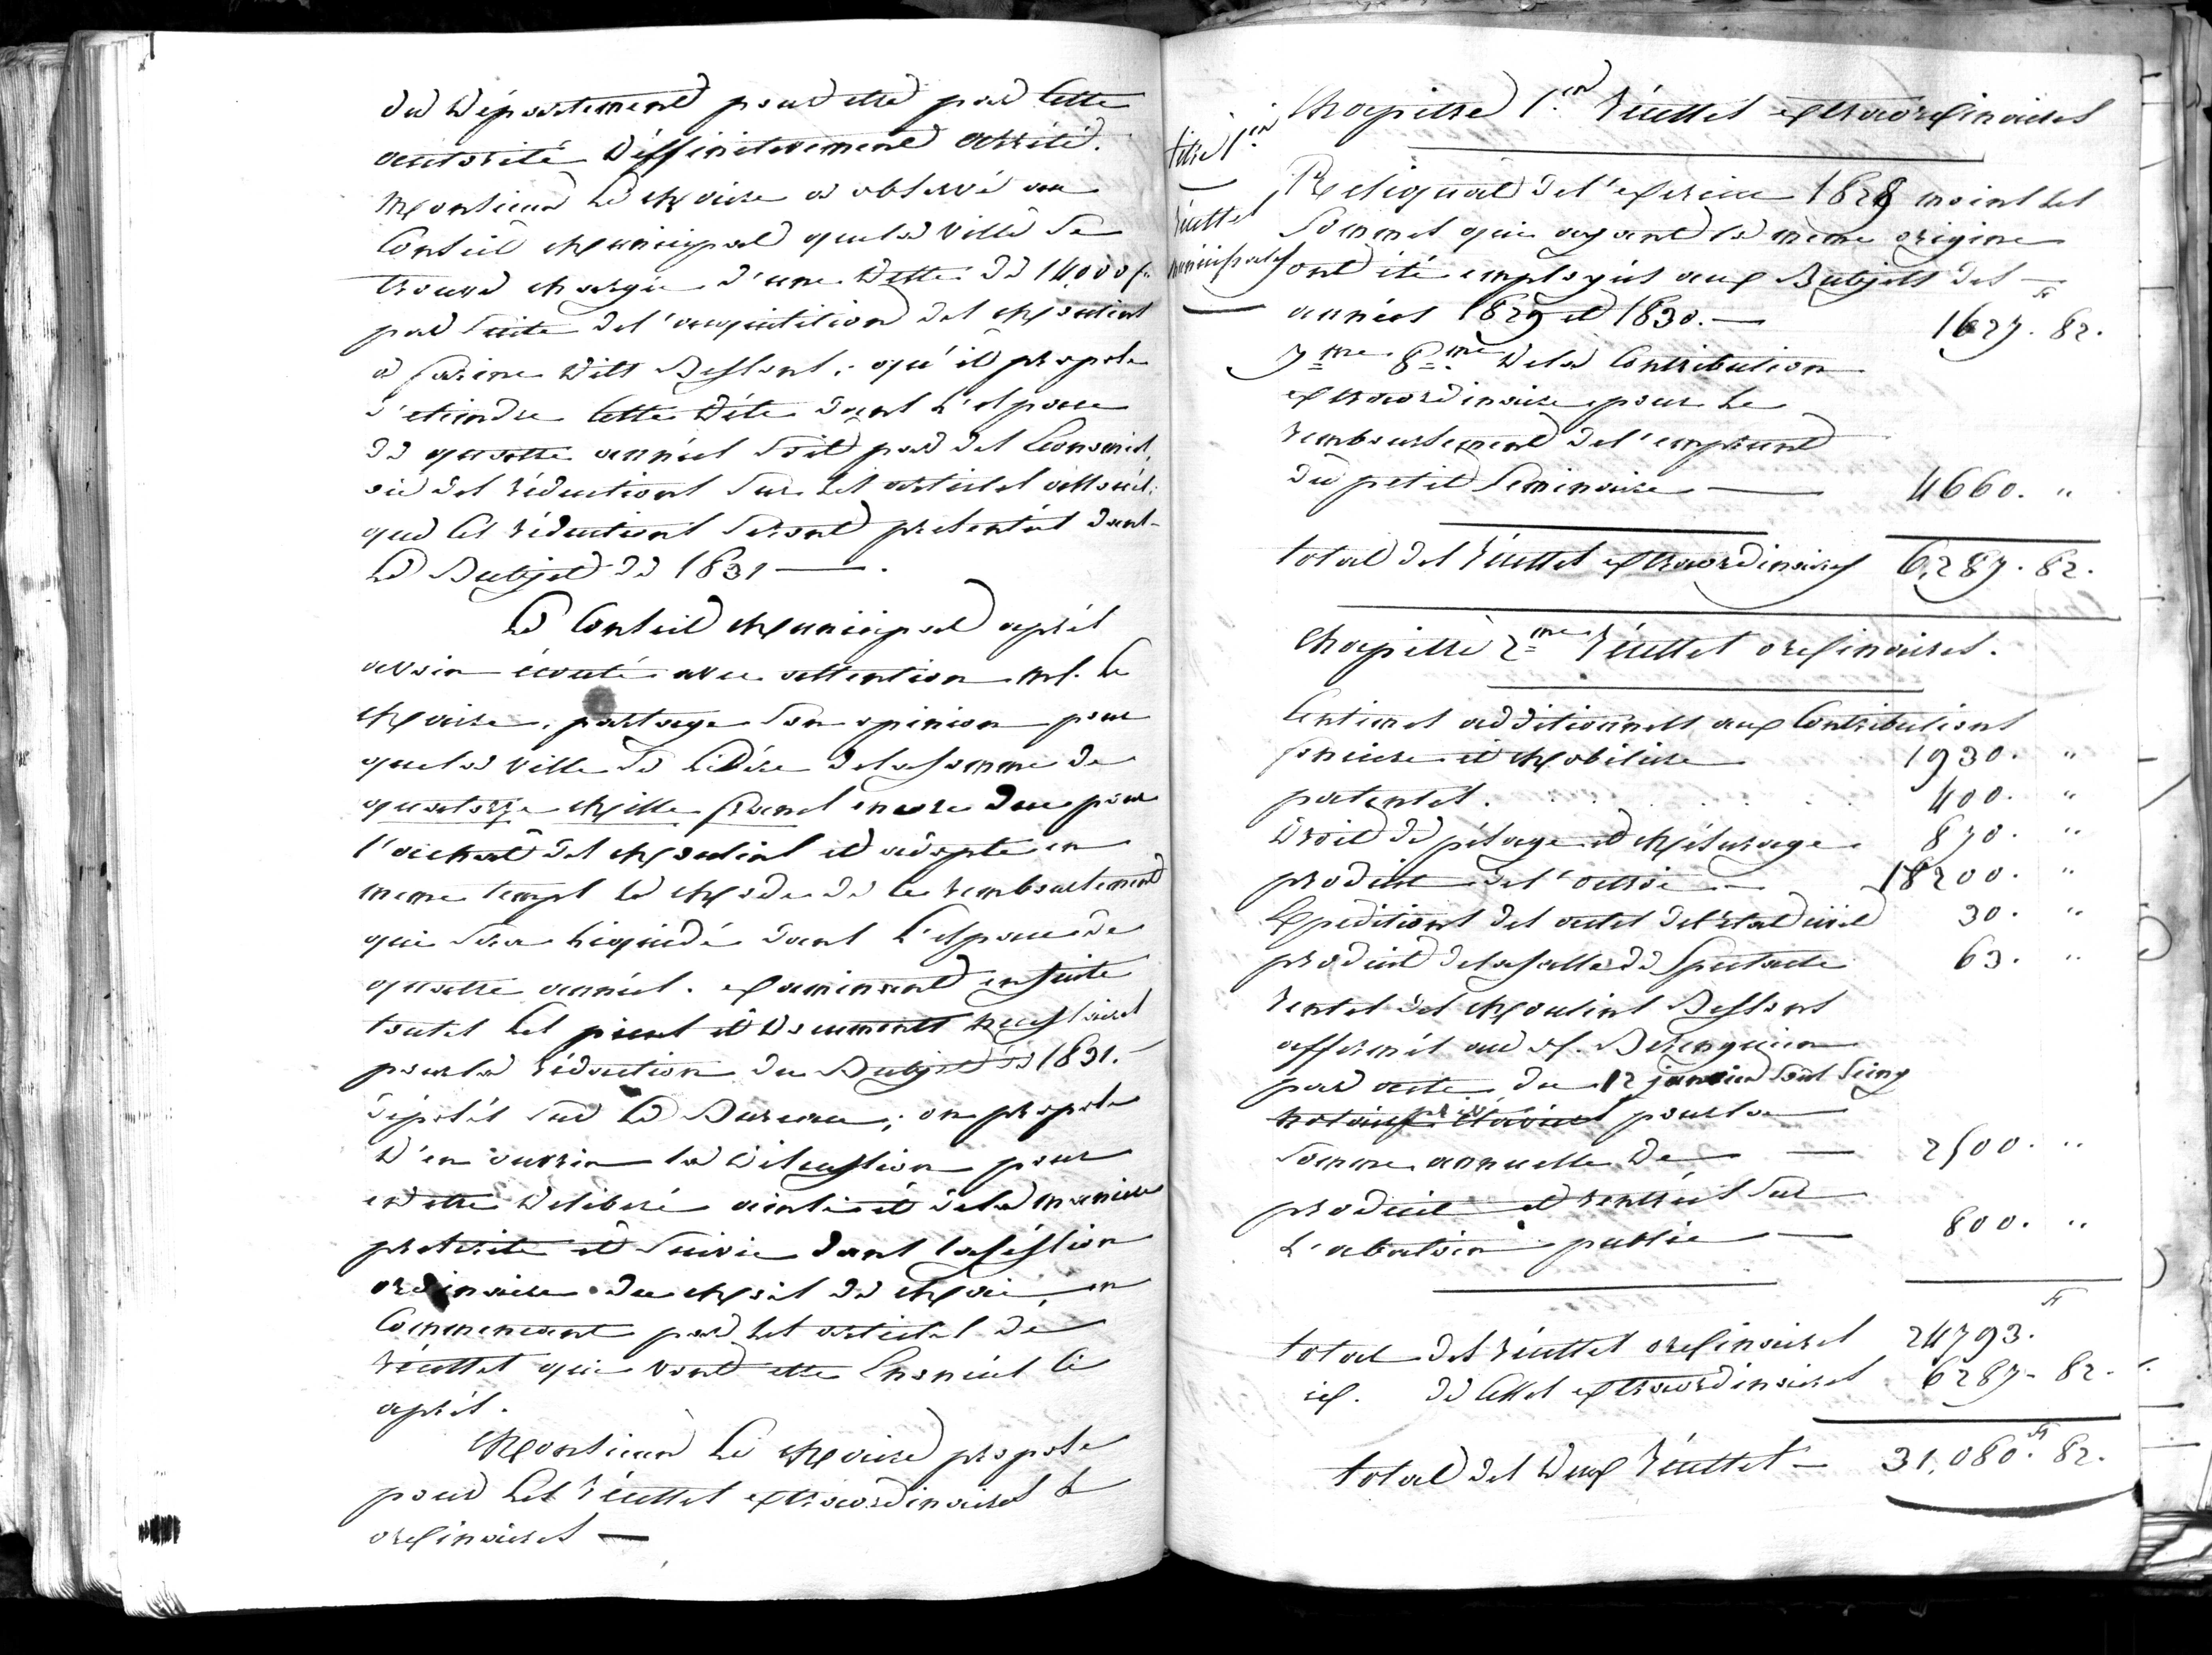 du département pour être par cette
autorité déffinitivement arrêté.
Monsieur le Maire a observé au
Conseil Municipal que la ville se
trouve chargée d'une dette de 14000 f.
par suite de l'acquisition des Moulins
à farine dits Bessons; qu'il propose
d'eteindre cette déte dans l'espace
de quatre années soit par des Economies,
sie des réductions sur les articles alloués;
que ces réductions seront presentées dans
le Budjet de 1831 —.
Le Conseil Municipal après
avoir écouté avec attention M. le
Maire, partage son opinion pour
que la ville se libère de la somme de
quatorze Mille francs encore due pour
l'achat des Moulins et adopte en
meme temps le Mode de ce remboursement
qui sera liquidé dans l'espace de
quatre années. Examinant ensuite
toutes les pieces et documents necessaires
pour la rédaction du Budjet de 1831.
déposés sur le Bureau; on propose
d'en ouvrir la discussion pour
etre deliberé ainsi et de la maniere
prescrite et suivie dans la séssion
ordinaire du Mois de Mai, en
Commencant par les articles de
récettes qui vont etre Enoncés ci
après.
Monsieur le Maire propose
pour les récettes extraordinaires &
ordinaires —
titre 1er
—
récettes
municipales
—
Chapitre 1er. Récettes extraordinaires
Reliquat de l'exercice 1828 moins les
sommes qui ayant la même origine
ont été employés aux Budjets des —
années 1829 et 1830. — 1627. 82.
7me. 8me. de la Contribution
extraordinaire pour le
remboursement de l'emprunt
du petit Séminaire — 4660. "
total des récettes extraordinaires 6,287. 82.
Chapitre 2me Récettes ordinaires.
Centimes additionnels aux Contributions
fonciere et Mobiliere 1930. "
patentes. . . . . . . 400. "
Droit de pésage et Mésurage 870. "
produit de l'octroi — 18200. "
Expeditions des actes de l'etat civil 30. "
produit de la salle de Spectacle 63. "
rentes des Moulins Bessons
affermés au Sr. Berenguier
par acte du 12 janvier sous seing
privé pour la
somme annuelle de — 2500. "
produit et rentrées sur
l'abatoir public — 800. "
total des récettes ordinaires 24793.
id. de celles extraordinaires 6287. 82.
total des deux récettes — 31,080. 82.